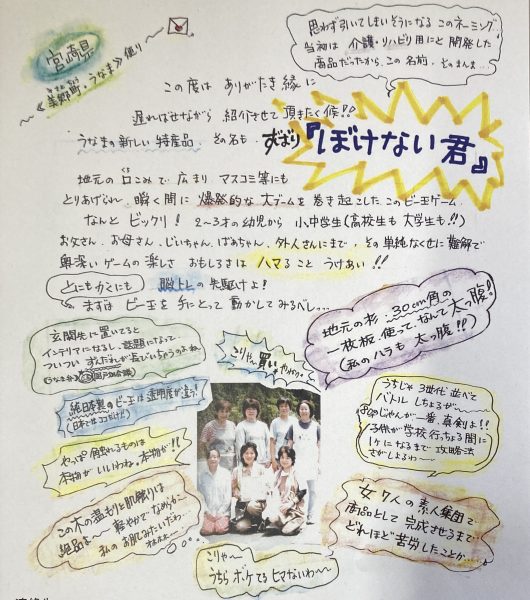 宮崎県
《美郷町、うなま》便り
思わず引いてしまいそうになる このネーミング
当初は 介護・リハビリ用にと 開発した
商品だったから、この 名前、そのまんま…
この度は ありがたき縁に
遅ればせながら 紹介させて 頂きたく候!!
うなまの新しい 特産品、その名も ずばり『ぼけない君』
地元の口こみで 広まり マスコミ等にも
とりあげられ 瞬く間に 爆発的な 大ブームを 巻き起こした この ビー玉ゲーム。
なんと ビックリ! 2〜3才の幼児から 小中学生(高校生も 大学生も!!)
お父さん、お母さん、じいちゃん、ばあちゃん、外人さんにまで、その 単純なくせに 難解で
奥深いゲームの楽しさ おもしろさは ハマること うけあい!!
とにもかくにも 脳トレの 先駆けよ!
まずは ビー玉を 手にとって 動かしてみるべし…
地元の杉、30cm角の
一枚板、使って、なんて 太っ腹!
(私のハラも 太っ腹!!)
玄関先に置いてると
インテリアになるし、話題になって、
ついつい すんだれが 長でいしちゃうのよね
こりゃ、買いやわ〜
純日本製の ビー玉は 透明度が違う!
(日本では ココだけ!)
やっぱ 触れるものは
本物が いいわねぇ、本物が!!
この木の温もりと 肌触りは
絶品よ〜 軽やかで なめらか〜
私の お肌みたいだわ…
うちじゃ 3世代 並べて
バトル しちょるが〜
おじじちゃんが 一番、真剣よ!!
子供が 学校 行っちょる間に
1ケになるまで 攻略法
さがしよるわ〜
女7人の 素人集団で
商品として 完成させるまで
どれほど 苦労したことか…
こりゃ〜
うちら ボケてる ヒマないわ〜